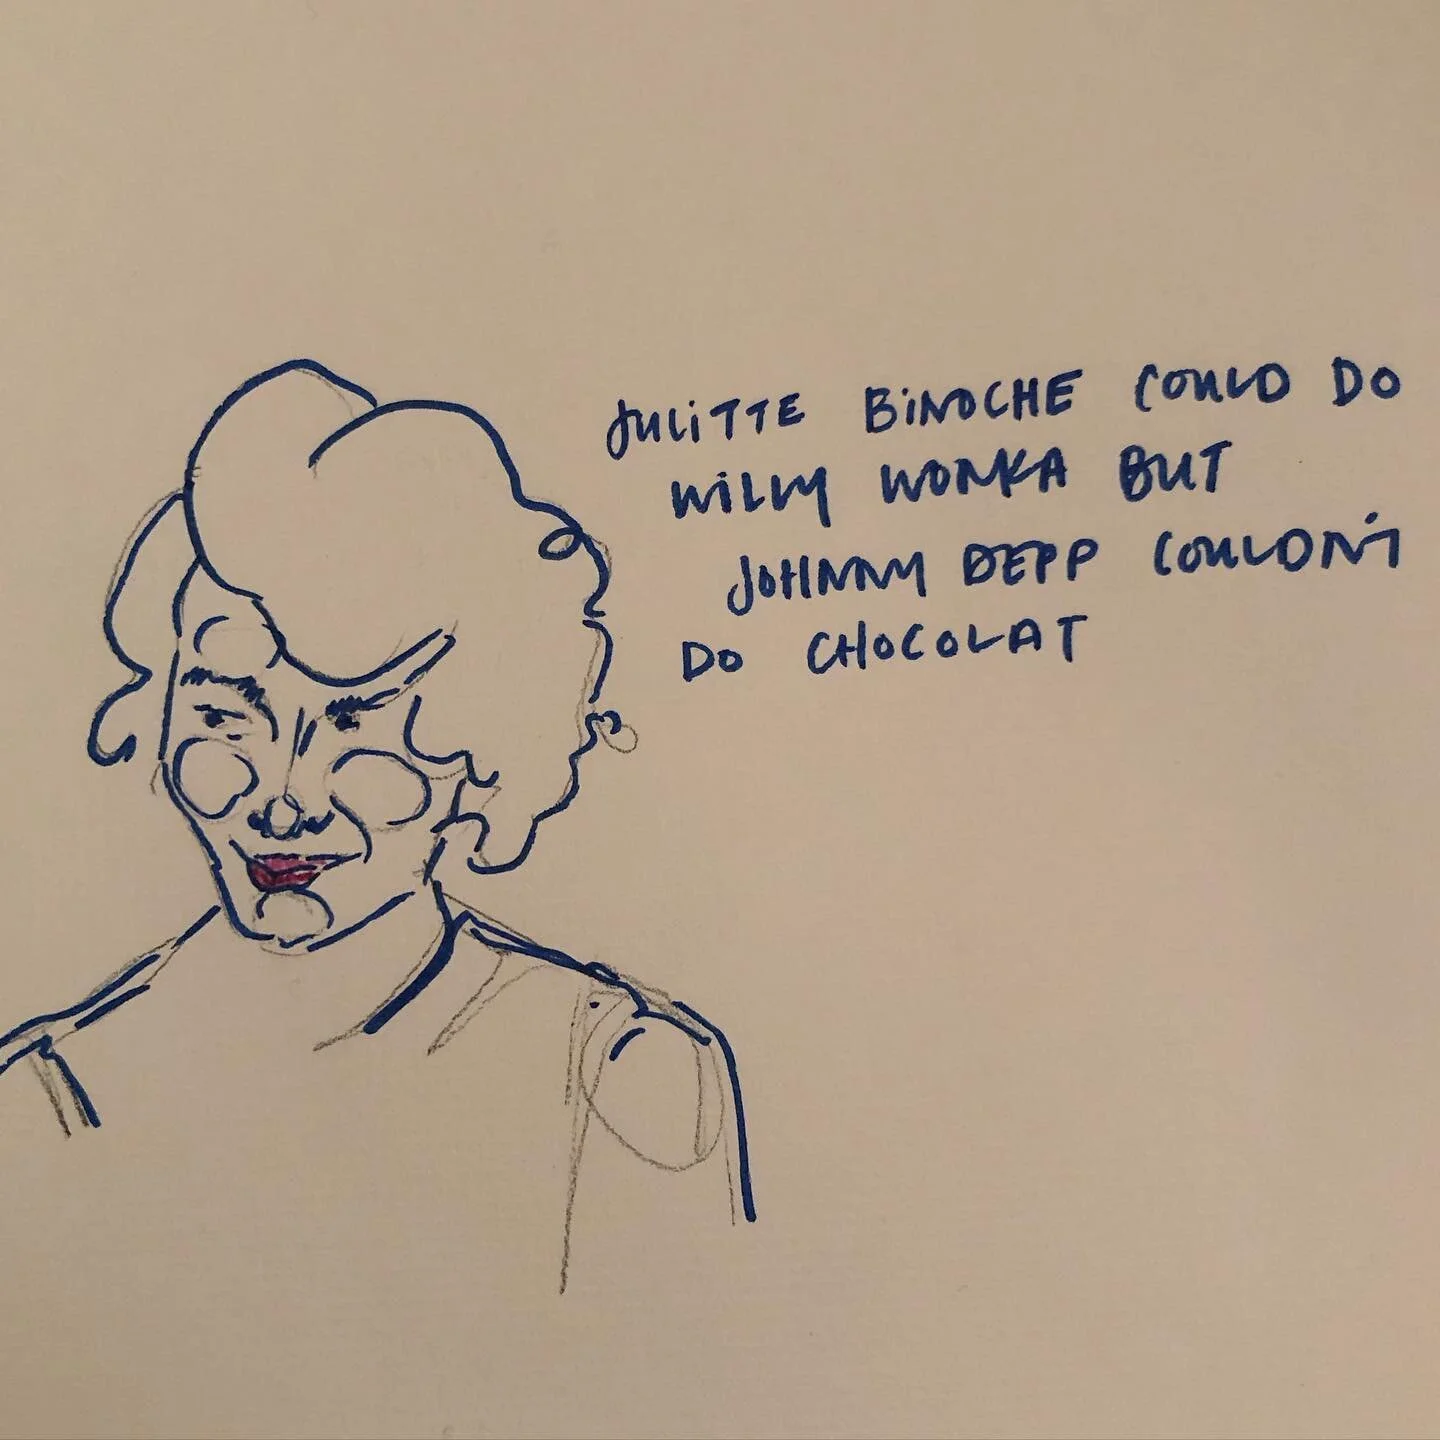 JULiTTE BiNOCHE COULD DO
WiLLY WONKA BUT
JOHNNY DEPP COULDN'T
DO CHOCOLAT